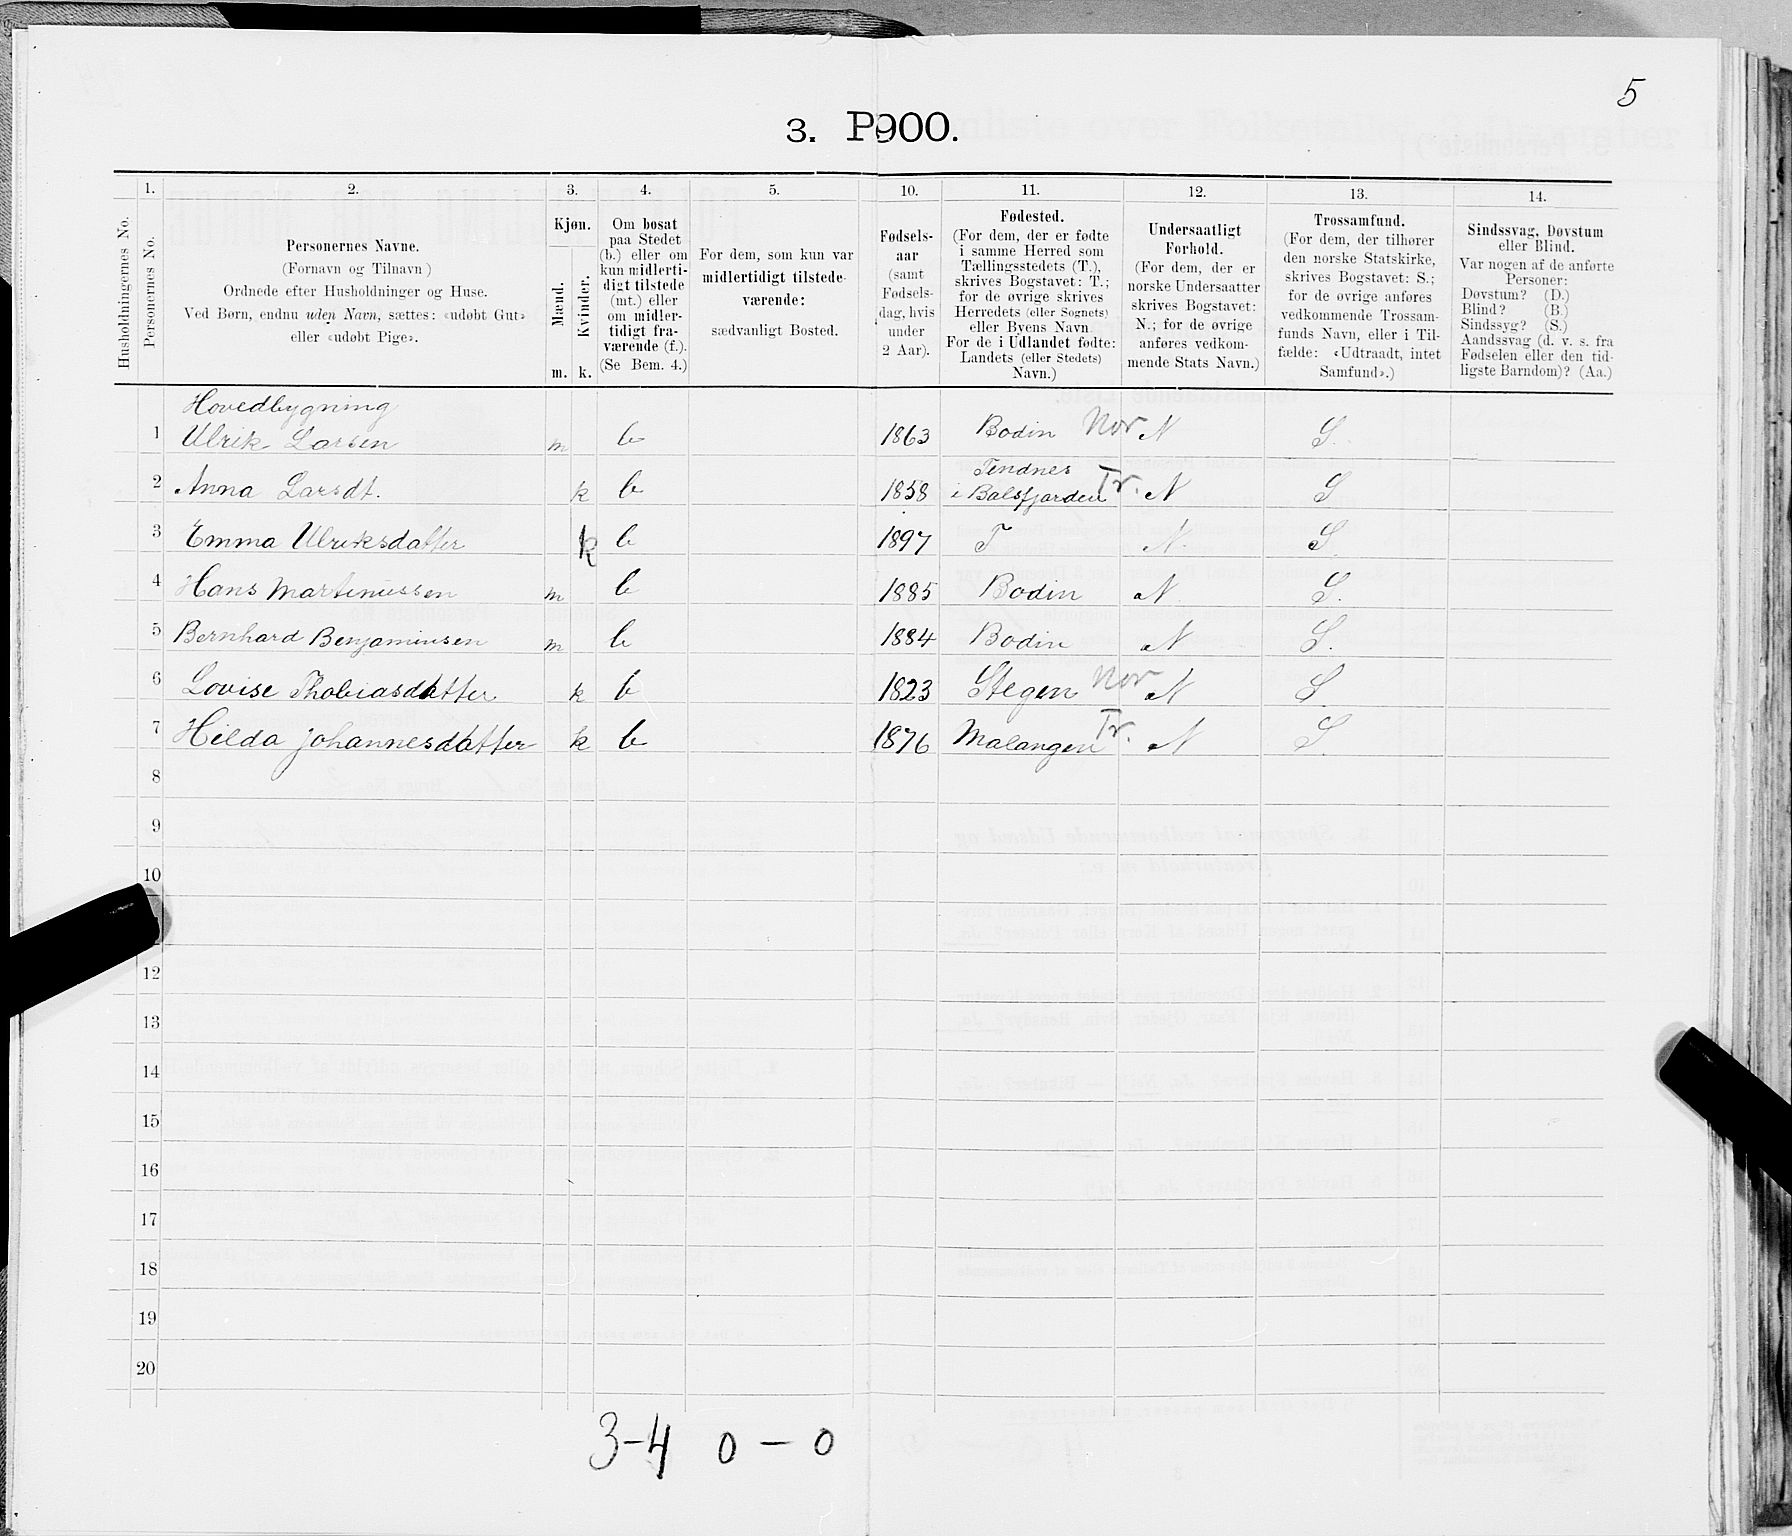 5
3. P900.
1. 2. 3. 4. 5. 10. 11. 12. 13. 14.
Husholdningernes No.
Personernes No.
Personernes Navne.
(Fornavn og Tilnavn)
Ordnede efter Husholdninger og Huse.
Ved Børn, endnu uden Navn, sættes: «udøbt Gut»
eller «udøbt Pige».
Kjøn.
Mænd.
Kvinder.
m. k.
Om bosat
paa Stedet
(b.) eller om
kun midlerti-
digt tilstede
(mt.) eller
om midler-
tidigt fra-
værende (f.).
(Se Bem. 4.)
For dem, som kun var
midlertidigt tilstede-
værende:
sædvanligt Bosted.
Fødsels-
aar
(samt
Fødsels-
dag, hvis
under
2 Aar).
Fødested.
(For dem, der er fødte
i samme Herred som
Tællingsstedets (T.),
skrives Bogstavet: T.;
for de øvrige skrives
Herredets (eller Sognets)
eller Byens Navn.
For de i Udlandet fødte:
Landets (eller Stedets)
Navn.)
Undersaatligt
Forhold.
(For dem, der er
norske Undersaatter
skrives Bogstavet:
N.; for de øvrige
anføres vedkom-
mende Stats Navn.)
Trossamfund.
(For dem, der tilhører
den norske Statskirke,
skrives Bogstavet: S.;
for de øvrige anføres
vedkommende Trossam-
funds Navn, eller i Til-
fælde: «Udtraadt, intet
Samfund».)
Sindssvag, Døvstum
eller Blind.
Var nogen af de anførte
Personer:
Døvstum? (D.)
Blind? (B.)
Sindssyg? (S.)
Aandssvag (d. v. s. fra
Fødselen eller den tid-
ligste Barndom)? (Aa.)
Hovedbygning
1 Ulrik Larsen m b 1863 Bodin Nor N S.
2 Anna Larsdt. k b 1858 Tendnes i Balsfjorden Tr. N S
3 Emma Ulriksdatter k b 1897 T N. S.
4 Hans Martinussen m b 1885 Bodin N S.
5 Bernhard Benjaminsen m b 1884 Bodin N S.
6 Lovise Thobiasdatter k b 1823 Stegen Nor N S
7 Hilda Johannesdatter k b 1876 Malangen Tr. N S.
8
9
10
12
13
14
15
16
17
18
19
20
3-4 0-0